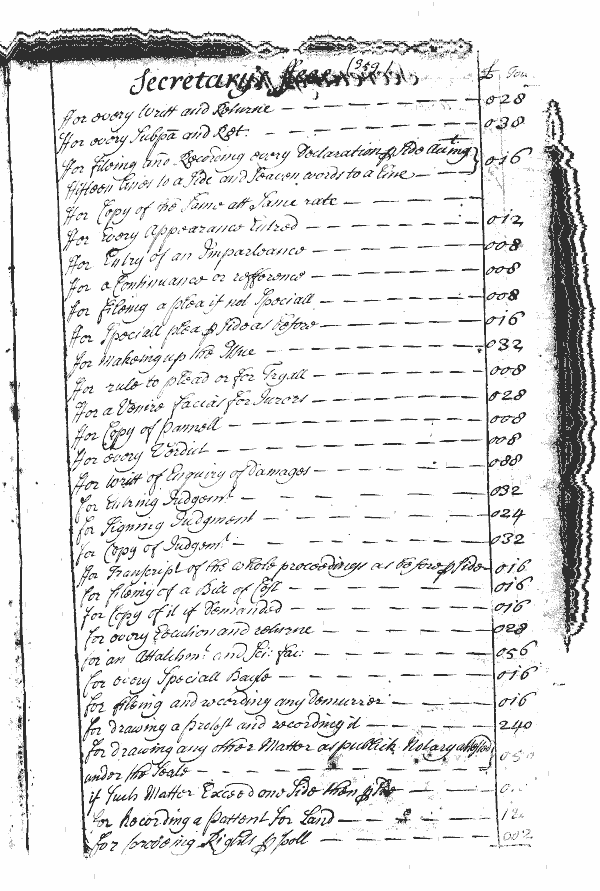 Secretary's ffees (359)
£ Tou
ffor every Writt and Returne — 028
ffor every Subpa and Ret. — 038
ffor fileing and Recording every Declaration p side allowing
fifteen lines to a Side and Seaven words to a Line — 016
ffor Copy of the Same att Same rate —
ffor every Appearance Entred — 012
ffor Entry of an Imparleance — 008
ffor a Continuance or refference — 008
for fileing a plea if not Speciall — 008
ffor Speciall plea p side as before — 016
ffor makeing up the Issue — 032
ffor rule to plead or for Tryall — 008
ffor a Venire facias for Jurors — 028
ffor Copy of pannell — 008
ffor every Verdict — 008
ffor Writt of Enquiry of Damages — 088
for Entring Judgemt — 032
for Signing Judgment — 024
for Copy of Judgemt — 032
ffor Transcript of the whole proceedings as before p side 016
for fileing of a Bill of Cost — 016
for Copy of it if Demanded — 016
for every Execution and returne — 028
for an Attachmt. and Sci: fac: — 056
for every Speciall Bayle — 016
for fileing and recording any Demurrer — 016
for drawing a protest and recording it — 240
for drawing any other Matter as publick Notary
under the Seale — 050
if Such Matter Exceed one Side then p side
for Recording a pattent for Land — 12
for proveing Rights p poll — 002